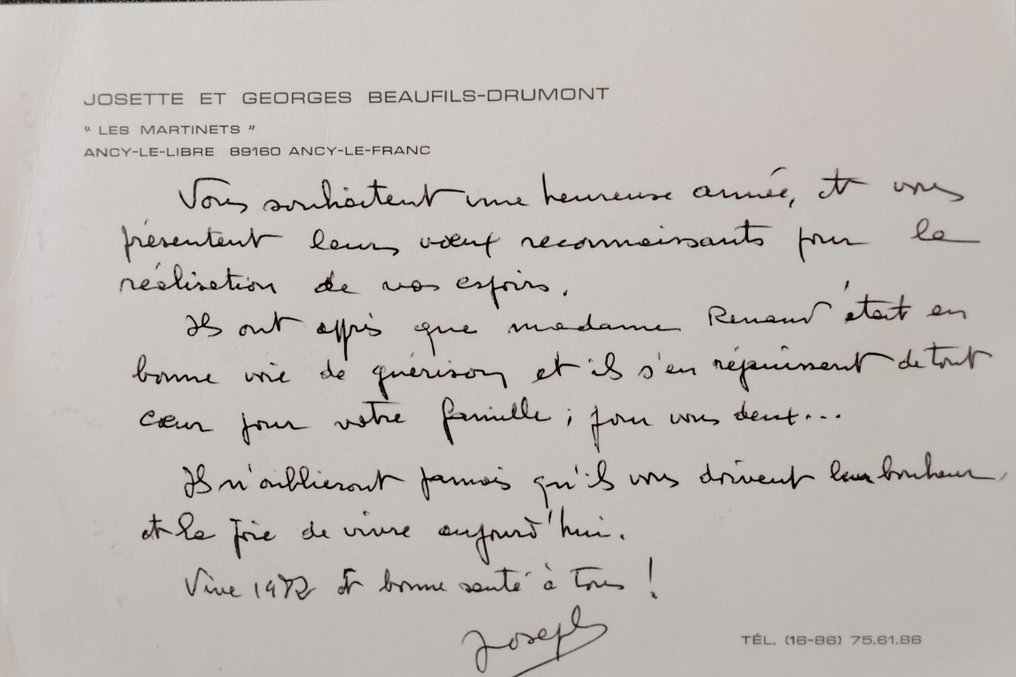 JOSETTE ET GEORGES BEAUFILS-DRUMONT
" LES MARTINETS "
ANCY-LE-LIBRE 89160 ANCY-LE-FRANC
Vous souhaitent une heureuse année, et vous
présentent leurs vœux reconnaissants pour la
réalisation de vos espoirs.
Ils ont appris que madame Renaud était en
bonne voie de guérison et ils s'en réjouissent de tout
cœur pour votre famille ; pour vous deux...
Ils n'oublieront jamais qu'ils vous doivent leur bonheur,
et la joie de vivre aujourd'hui.
Vive et bonne santé à tous !
Joseph
TÉL. (16-86) 75.61.86